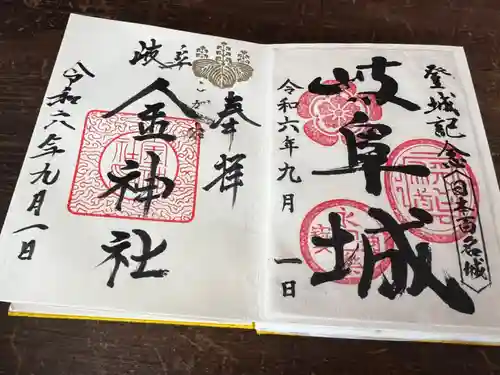 登城記念
日本百名城
岐阜城
令和六年九月一日
奉拝
こがね
岐阜
金神社
令和六年九月一日